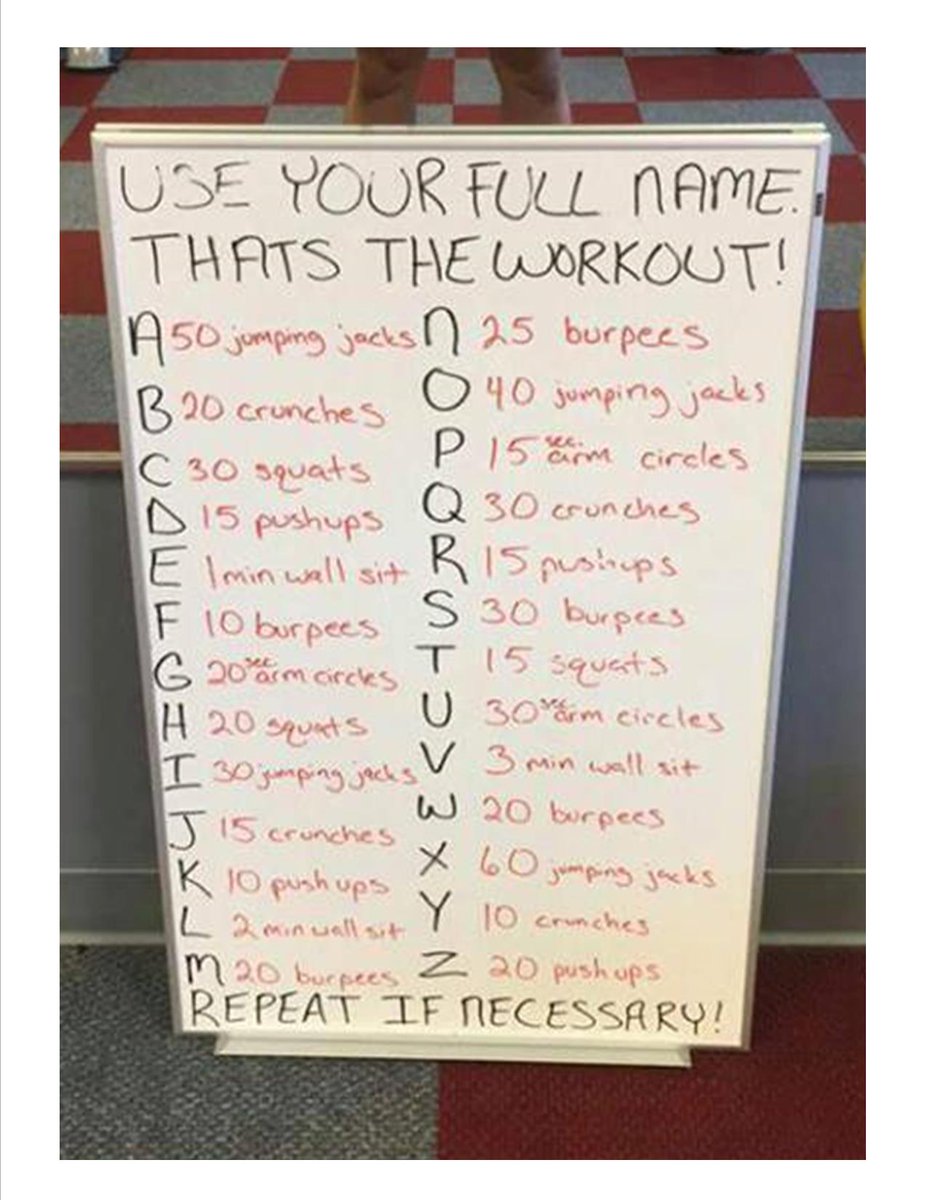 USE YOUR FULL NAME.
THATS THE WORKOUT!
A 50 jumping jacks
B 20 crunches
C 30 squats
D 15 pushups
E 1 min wall sit
F 10 burpees
G 20 sec arm circles
H 20 squats
I 30 jumping jacks
J 15 crunches
K 10 push ups
L 2 min wall sit
M 20 burpees
N 25 burpees
O 40 jumping jacks
P 15 sec. arm circles
Q 30 crunches
R 15 pushups
S 30 burpees
T 15 squats
U 30 sec. arm circles
V 3 min wall sit
W 20 burpees
X 60 jumping jacks
Y 10 crunches
Z 20 push ups
REPEAT IF NECESSARY!